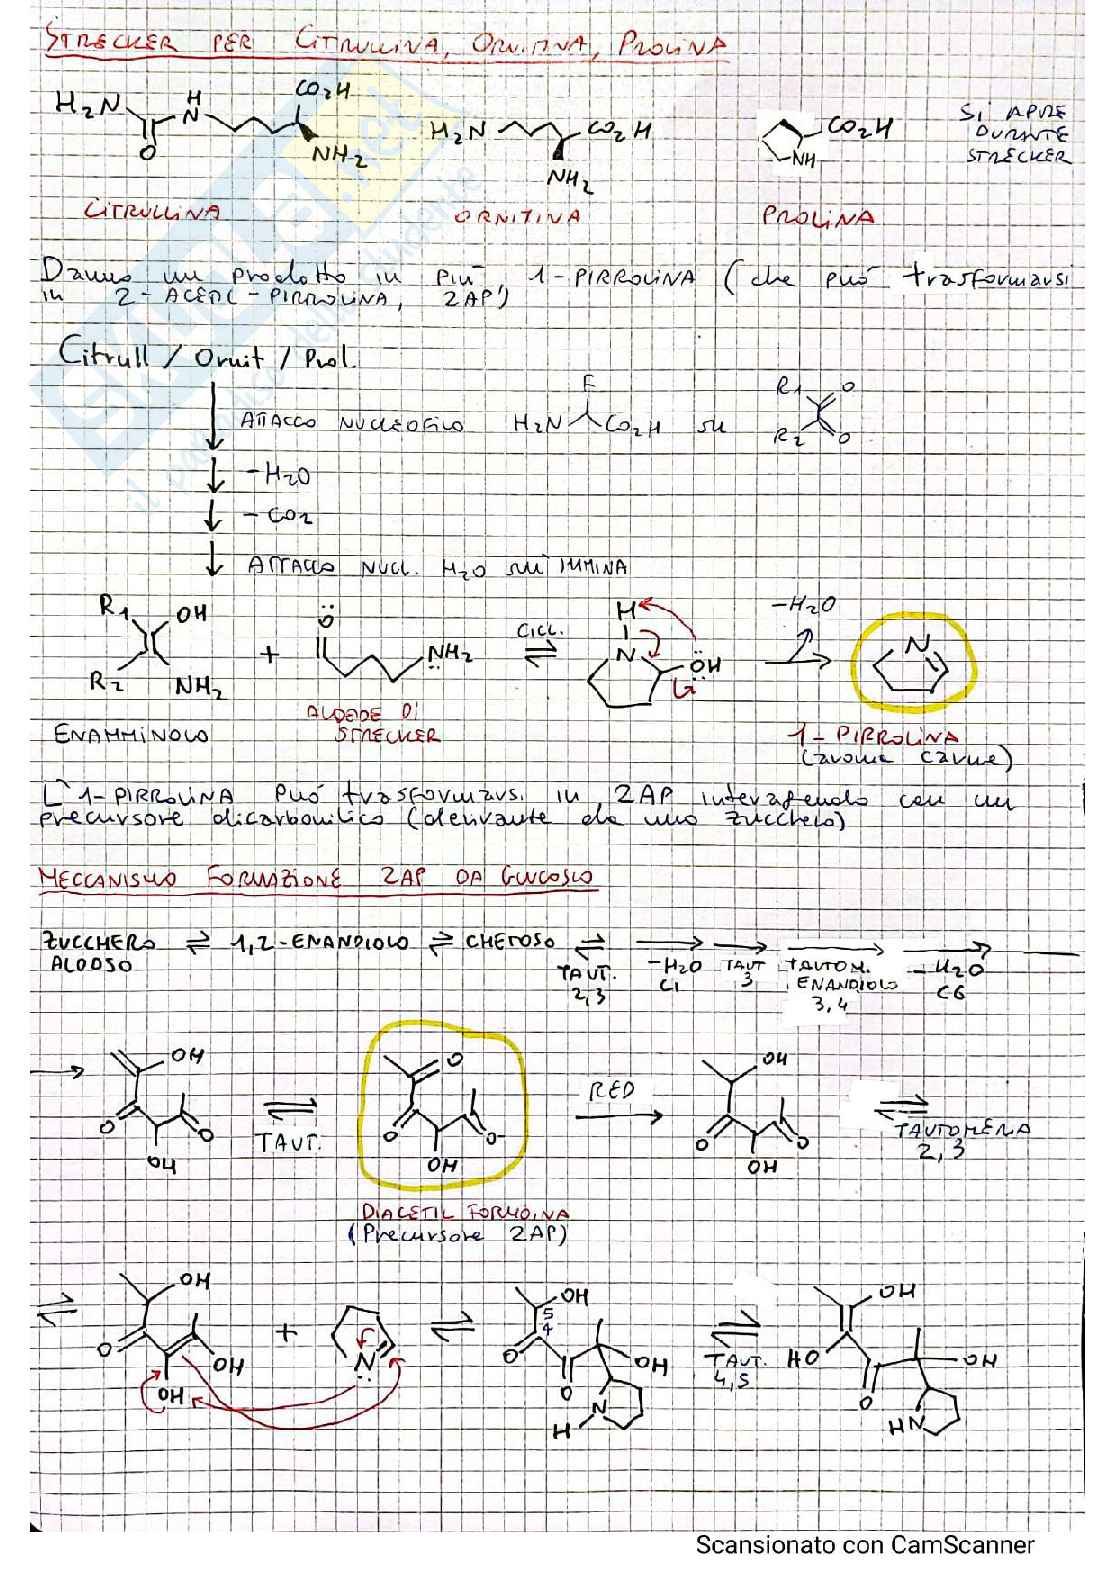 STRECKER PER CITRULLINA, ORNITINA, PROLINA
H₂N H N O CO₂H NH₂
H₂N CO₂H NH₂
CO₂H NH
SI APRE
DURANTE
STRECKER
CITRULLINA ORNITINA PROLINA
Danno un prodotto in più, 1-PIRROLINA (che può trasformarsi
in 2-ACETIL-PIRROLINA, 2AP)
Citrull / Ornit / Prol.
ATTACCO NUCLEOFILO H₂N CO₂H su R1 O R2 O
-H₂O
-CO2
ATTACCO NUCL. H₂O su IMMINA
R1 OH R2 NH₂ + O NH₂ CICL. H N OH -H₂O N
ENAMMINOLO
ALDEIDE DI
STRECKER
1-PIRROLINA
(aroma carne)
L'1-PIRROLINA può trasformarsi in 2AP interagendo con un
precursore dicarbonilico (derivante da uno zucchero)
MECCANISMO FORMAZIONE 2AP DA GLUCOSIO
ZUCCHERO ⇌ 1,2-ENANDIOLO ⇌ CHETOSO ⇌
ALDOSO
TAUT.
2,3
-H₂O
C1
TAUT
3
TAUTOM.
ENANDIOLO
3,4
-H₂O
C6
OH O O OH
TAUT.
O O O OH
RED
OH O O OH
TAUTOMERIA
2,3
DIACETIL FORMOINA
(Precursore 2AP)
OH O OH OH + N
OH 5 4 O O OH N H
TAUT.
4,5
OH HO O OH HN
Scansionato con CamScanner